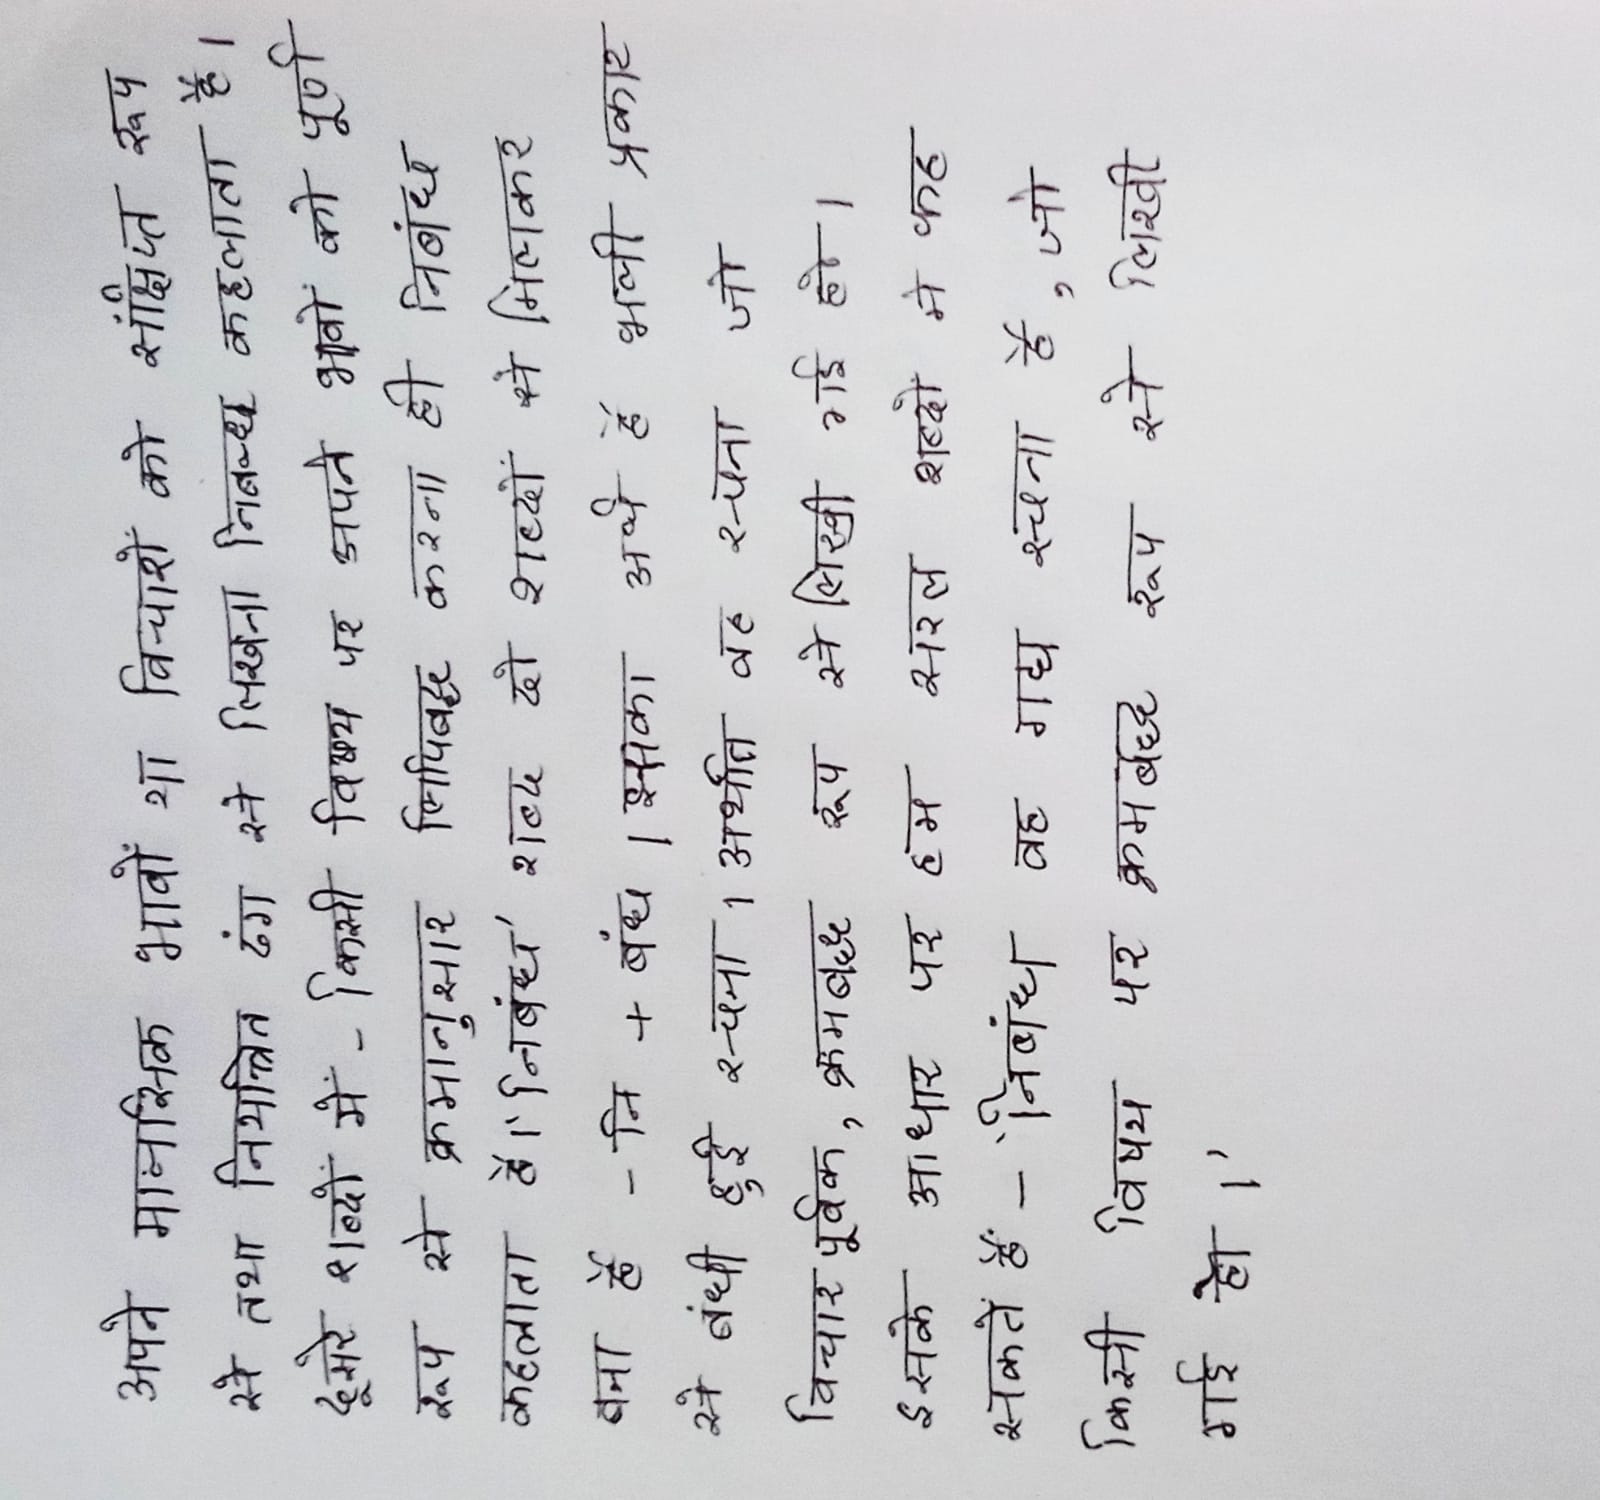 अपने मानसिक भावों या विचारों को संक्षिप्त रूप
से तथा नियन्त्रित ढंग से लिखना निबन्ध कहलाता है।
दूसरे शब्दों में - किसी विषय पर अपने भावों को पूर्ण
रूप से क्रमानुसार लिपिबद्ध करना ही निबंध
कहलाता है। 'निबंध' शब्द दो शब्दों से मिलकर
बना है - नि + बंध । इसका अर्थ है भली प्रकार
से बंधी हुई रचना । अर्थात वह रचना जो
विचार पूर्वक, क्रमबद्ध रूप से लिखी गई हो ।
इसके आधार पर हम सरल शब्दों मे कह
सकतें हैं - 'निबंध वह गद्य रचना है, जो
किसी विषय पर क्रमबद्ध रूप से लिखी
गई हो ।'